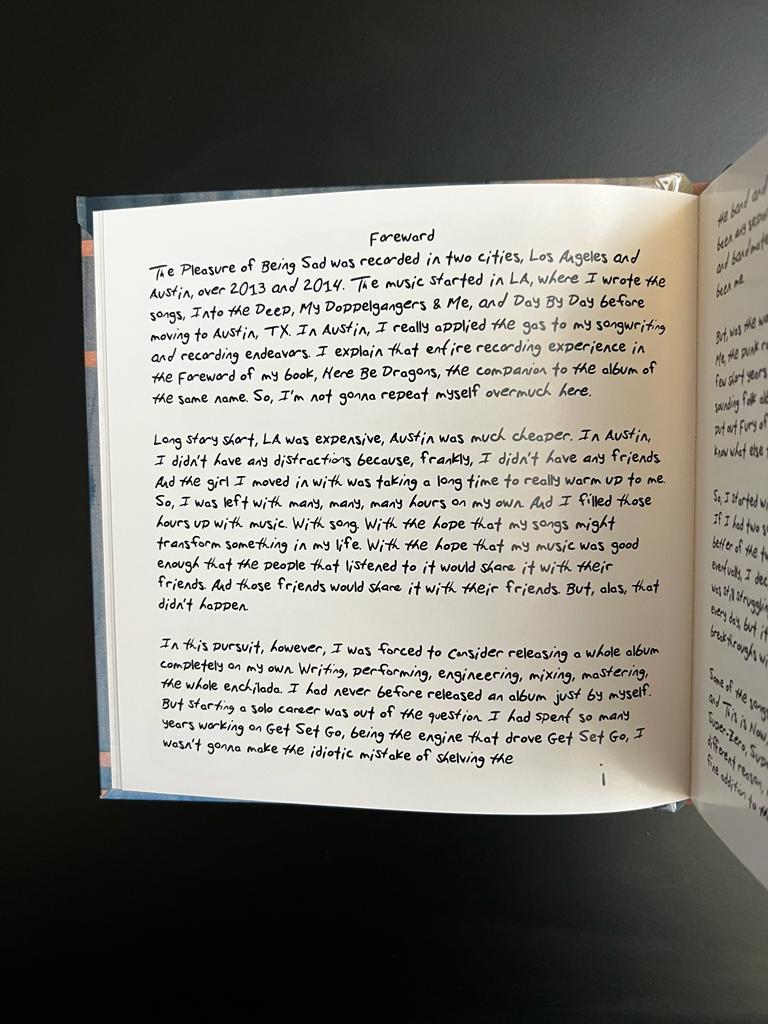 Foreward
The Pleasure of Being Sad was recorded in two cities, Los Angeles and
Austin, over 2013 and 2014. The music started in LA, where I wrote the
songs, Into the Deep, My Doppelgangers & Me, and Day By Day before
moving to Austin, TX. In Austin, I really applied the gas to my songwriting
and recording endeavors. I explain that entire recording experience in
the Foreword of my book, Here Be Dragons, the companion to the album of
the same name. So, I'm not gonna repeat myself overmuch here.
Long story short, LA was expensive, Austin was much cheaper. In Austin,
I didn't have any distractions because, frankly, I didn't have any friends.
And the girl I moved in with was taking a long time to really warm up to me.
So, I was left with many, many, many hours on my own. And I filled those
hours up with music. With song. With the hope that my songs might
transform something in my life. With the hope that my music was good
enough that the people that listened to it would share it with their
friends. And those friends would share it with their friends. But, alas, that
didn't happen.
In this pursuit, however, I was forced to consider releasing a whole album
completely on my own. Writing, performing, engineering, mixing, mastering,
the whole enchilada. I had never before released an album just by myself.
But starting a solo career was out of the question. I had spent so many
years working on Get Set Go, being the engine that drove Get Set Go, I
wasn't gonna make the idiotic mistake of shelving the
i
the band and
been any
and
been me.
But, was the
Me, the punk
few short years
sounding folk
put out Fury of
know what else
So, I started
If I had two
better of the
eventually, I
was still
every day, but it
breakthroughs
Some of the songs
and This is Now,
Super-Zero,
different reason,
fine addition to